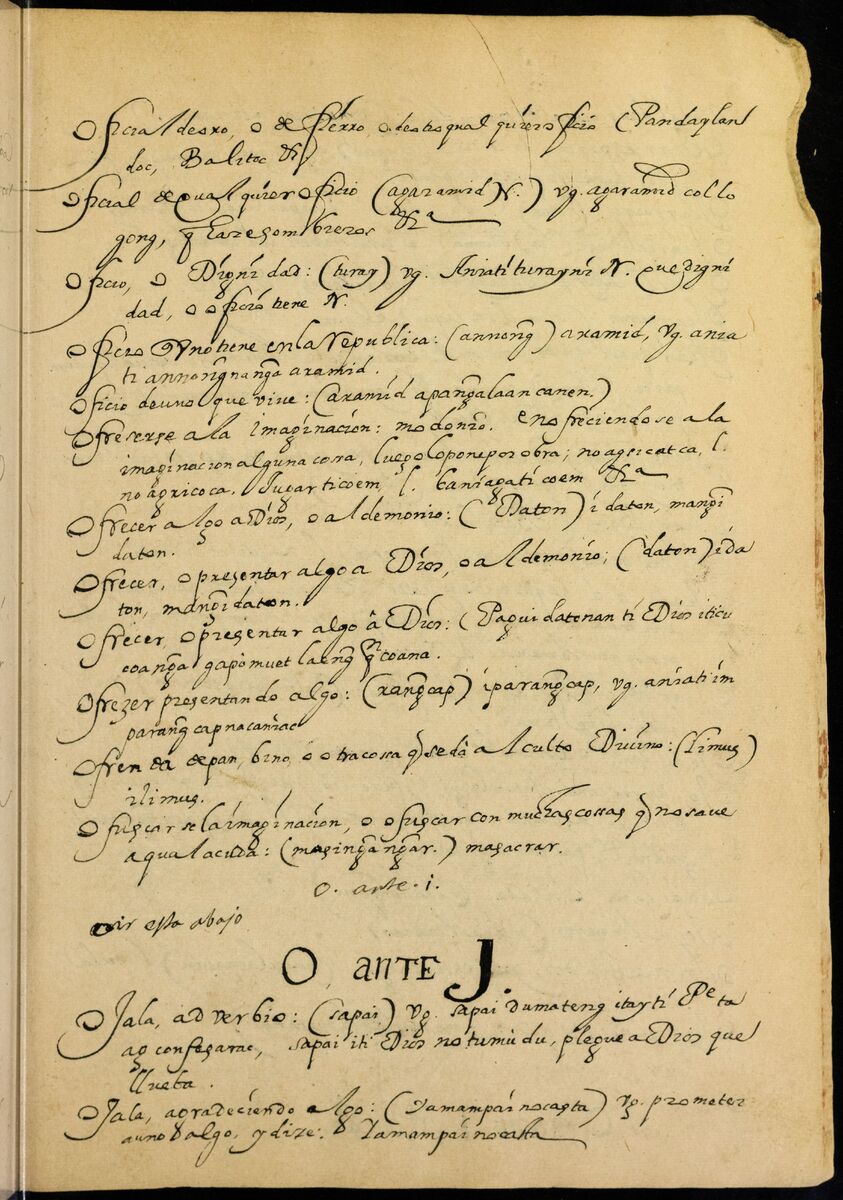 Oficial deoro, o de fierro, o deotro qual quiero ficio (Panday lan
doc, Balitoc &
Oficial de qual quier oficio (agaramid N.) vg. agaramid collo
gong, q haze sombreros &ra
Oficio, o Digni dad: (turay) vg. Aniati turayni N. que digni
dad, o oficio tiene N.
Oficio q uno tiene en la Republica: (annong) aramid, vg. ania
ti annong nanga aramid.
Oficio de uno que vive: (aramid apangalaan canen.)
Ofreserse a la imaginacion: modonio. enofreciendose a la
imaginacion alguna cossa, luego lo pone por obra; no agricatca, l.
no agricoca. Jugarticoem, l. baniagaticoem &ra
Ofrecer algo a Dios, o al demonio: (Daton) i daton, mangi
daton.
Ofrecer, o presentar algo a Dios, o al demonio; (daton) ida
ton, mangi daton.
Ofrecer, o presentar algo â Dios: (Pagui datonan ti Dios iticu
coanga gapomuet laeng coana.
Ofrezer presentando algo: (rangcap) iparangcap, vg. aniati im
parang cap nacaniac
Ofrenda de pan, bino, o otra cossa q se dâ al culto Divino: (limus)
ilimus.
Ofuscar se la imaginacion, o ofuscar con muchas cossas q no save
a qual acuda: (masinga ngar.) masacrar.
O. ante. i.
oir esta abajo
O ANTE J.
OJala, ad verbio: (sapai) vg. sapai dumateng itayti Pe ta
ag confesarac, sapai iti Dios no tumudu, plegue a Dios que
llueba.
OJala, agradeciendo algo: (Yamampai nocasta) vg. prometer
a uno algo, y dize: Yamampai nocasta